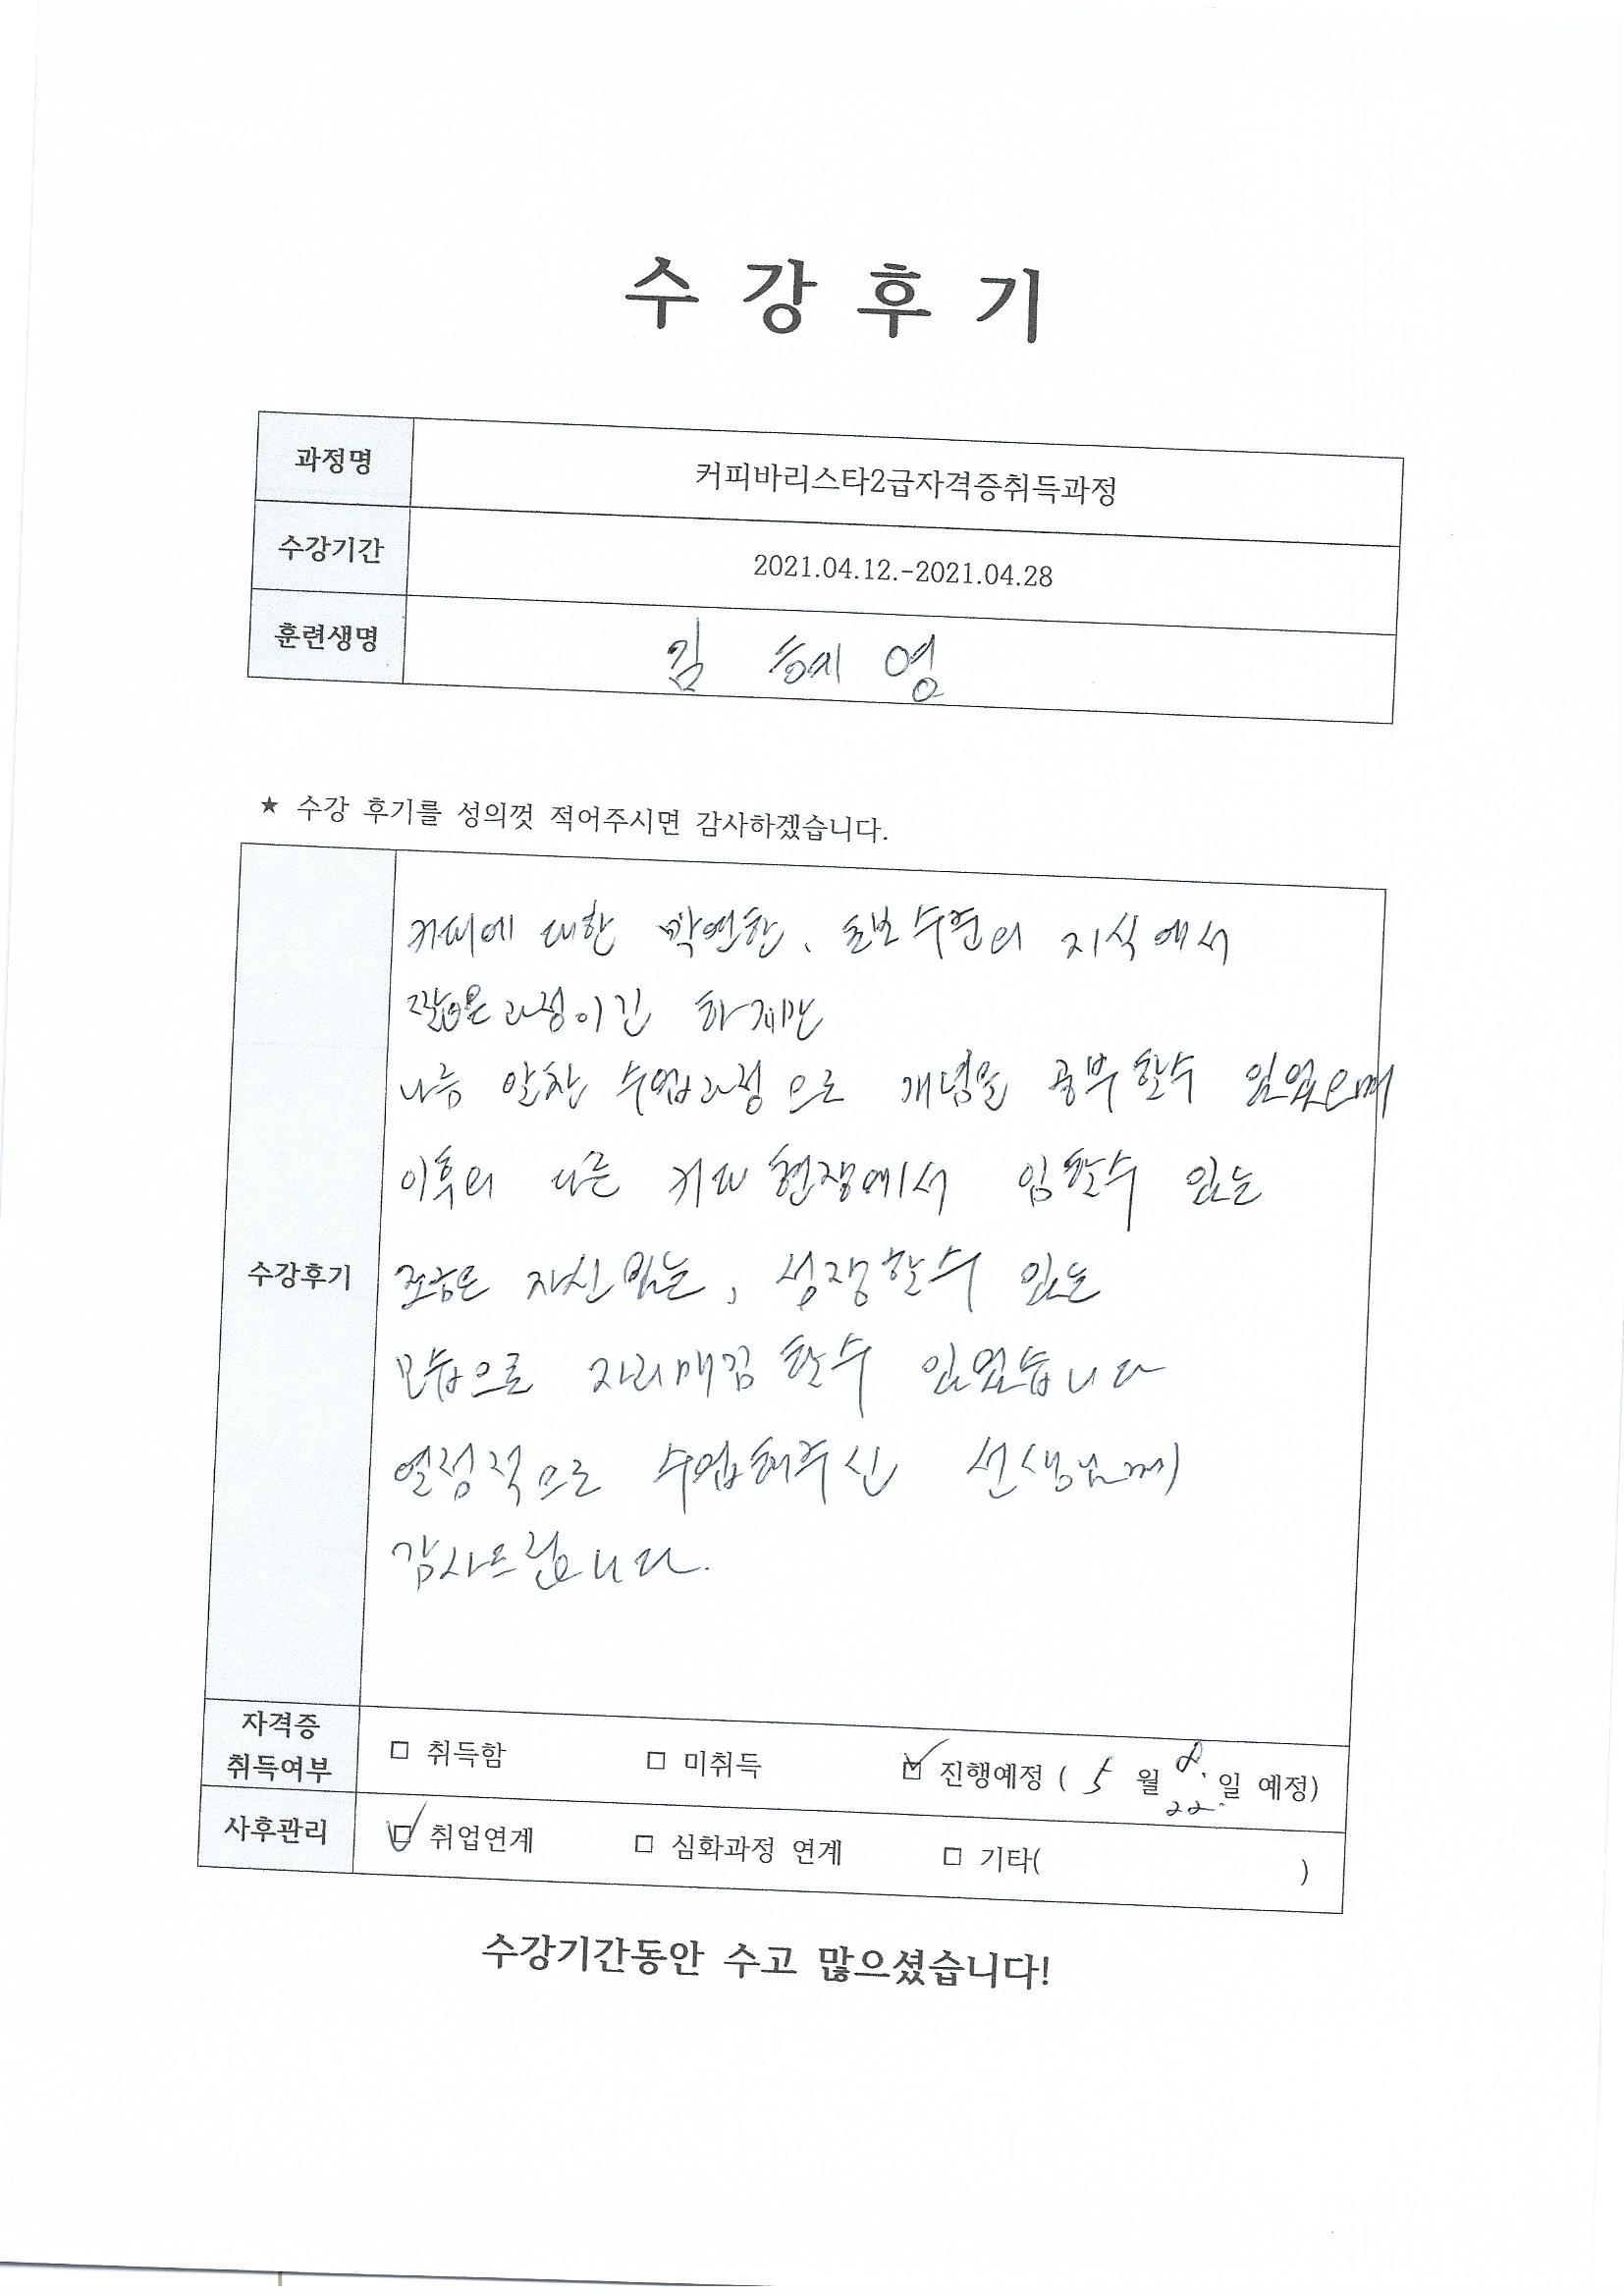 수강후기
과정명 커피바리스타2급자격증취득과정
수강기간 2021.04.12.-2021.04.28
훈련생명 김 혜 영
★ 수강 후기를 성의껏 적어주시면 감사하겠습니다.
커피에 대한 막연한, 초보 수준의 지식에서
짧은 과정이긴 하지만
나름 알찬 수업과정으로 개념을 공부할수 있었으며
이후의 다른 커피 현장에서 임할수 있는
수강후기
조금은 자신있는, 성장할수 있는
모습으로 자리매김 할수 있었습니다
열정적으로 수업해주신 선생님께
감사드립니다.
자격증 취득여부 □ 취득함 □ 미취득 ☑ 진행예정 ( 5 월 8. 22. 일 예정)
사후관리 ☑ 취업연계 □ 심화과정 연계 □ 기타( )
수강기간동안 수고 많으셨습니다!